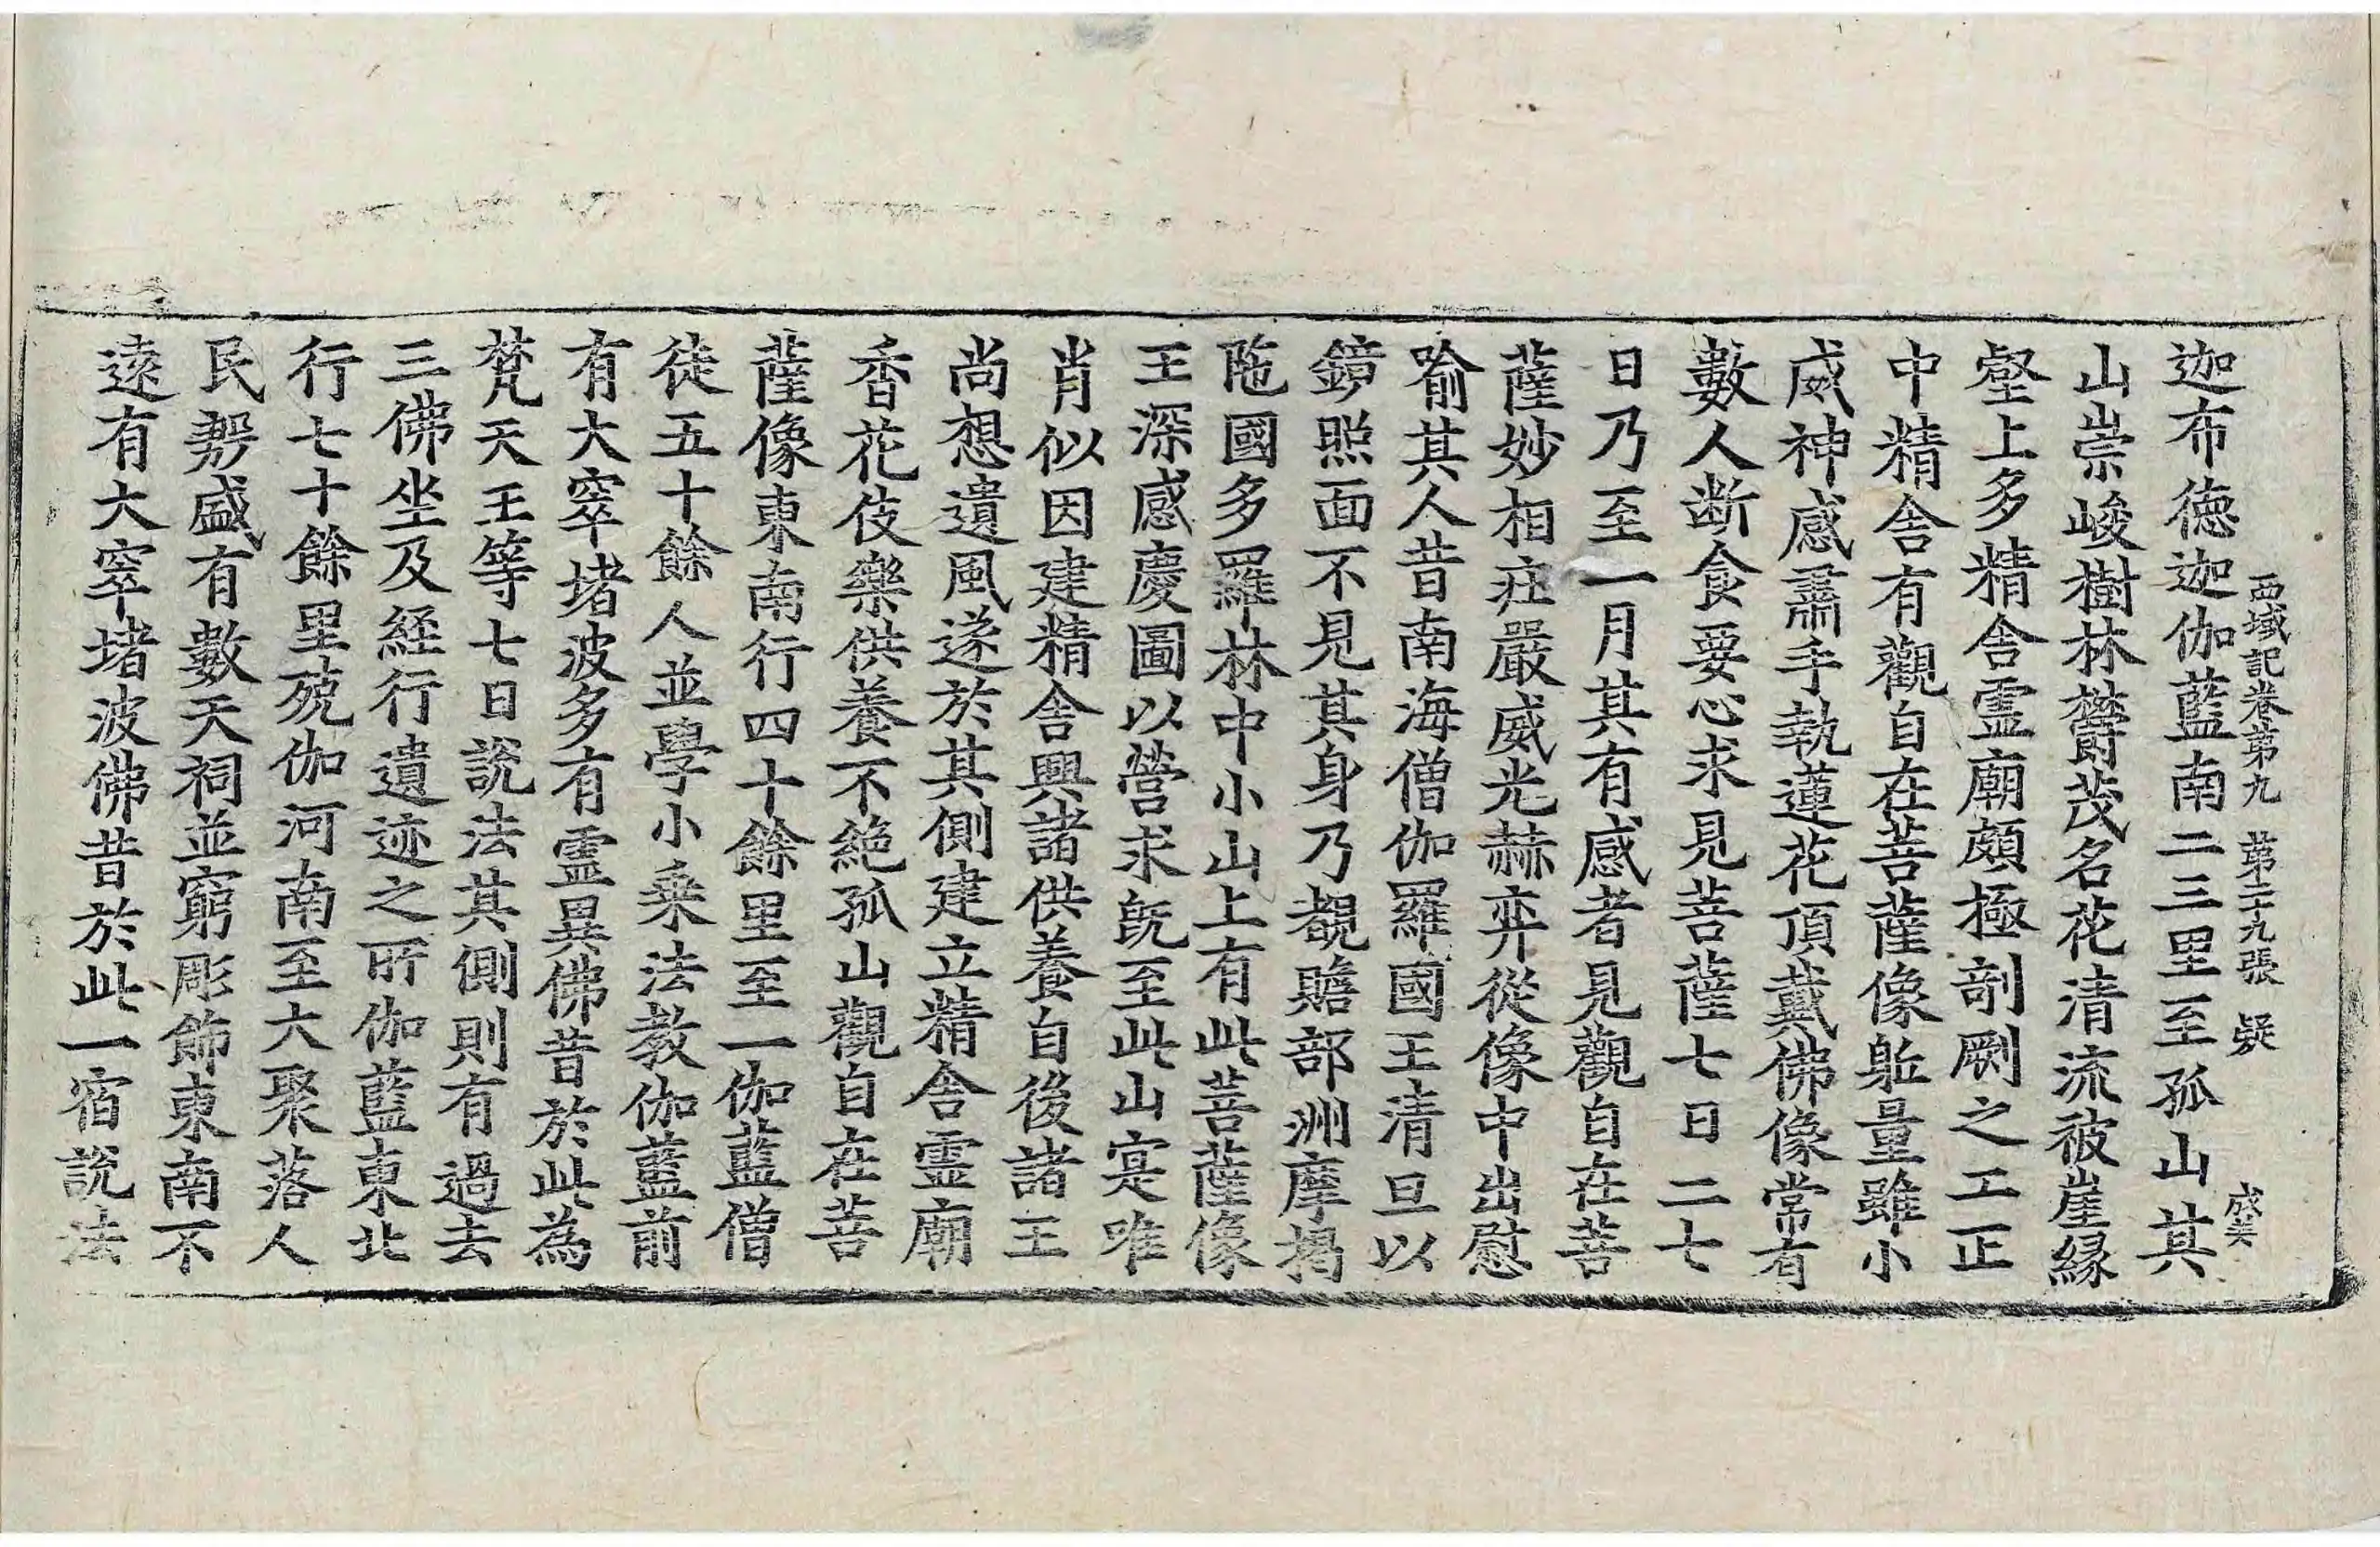 西域記卷第九 第二十九張 疑 成美
迦布德迦伽藍南二三里至孤山其
山崇峻樹林欝茂名花清流被崖縁
壑上多精舎霊廟頗極剞劂之工正
中精舎有觀自在菩薩像躰量雖小
威神感肅手執蓮花頂戴佛像常有
數人断食要心求見菩薩七日二七
日乃至一月其有感者見觀自在菩
薩妙相莊嚴威光赫弈從像中出慰
喻其人昔南海僧伽羅國王清旦以
鏡照面不見其身乃覩贍部洲摩揭
陁國多羅林中小山上有此菩薩像
王深感慶圖以營求旣至此山寔唯
肖似因建精舎興諸供養自後諸王
尚想遺風遂於其側建立精舎霊廟
香花伎樂供養不絶孤山觀自在菩
薩像東南行四十餘里至一伽藍僧
徒五十餘人並學小乗法教伽藍前
有大窣堵波多有霊異佛昔於此為
梵天王等七日說法其側則有過去
三佛坐及経行遺迹之所伽藍東北
行七十餘里殑伽河南至大聚落人
民殷盛有數天祠並窮彫飾東南不
遠有大窣堵波佛昔於此一宿說法